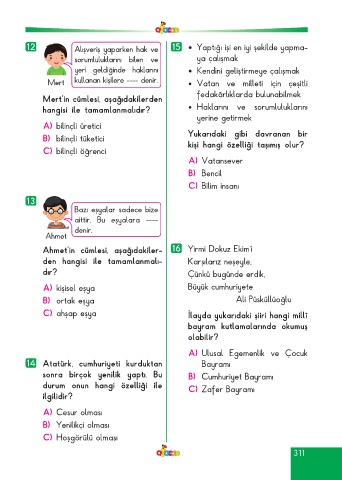 12
Alışveriş yaparken hak ve
sorumluluklarını bilen ve
yeri geldiğinde haklarını
kullanan kişilere ---- denir.
Mert
Mert'in cümlesi, aşağıdakilerden
hangisi ile tamamlanmalıdır?
A) bilinçli üretici
B) bilinçli tüketici
C) bilinçli öğrenci
13
Bazı eşyalar sadece bize
aittir. Bu eşyalara ----
denir.
Ahmet
Ahmet'in cümlesi, aşağıdakiler-
den hangisi ile tamamlanmalı-
dır?
A) kişisel eşya
B) ortak eşya
C) ahşap eşya
14 Atatürk, cumhuriyeti kurduktan
sonra birçok yenilik yaptı. Bu
durum onun hangi özelliği ile
ilgilidir?
A) Cesur olması
B) Yenilikçi olması
C) Hoşgörülü olması
15 • Yaptığı işi en iyi şekilde yapma-
ya çalışmak
• Kendini geliştirmeye çalışmak
• Vatan ve milleti için çeşitli
fedakârlıklarda bulunabilmek
• Haklarını ve sorumluluklarını
yerine getirmek
Yukarıdaki gibi davranan bir
kişi hangi özelliği taşımış olur?
A) Vatansever
B) Bencil
C) Bilim insanı
16 Yirmi Dokuz Ekim'i
Karşılarız neşeyle,
Çünkü bugünde erdik,
Büyük cumhuriyete
Ali Püsküllüoğlu
İlayda yukarıdaki şiiri hangi millî
bayram kutlamalarında okumuş
olabilir?
A) Ulusal Egemenlik ve Çocuk
Bayramı
B) Cumhuriyet Bayramı
C) Zafer Bayramı
311